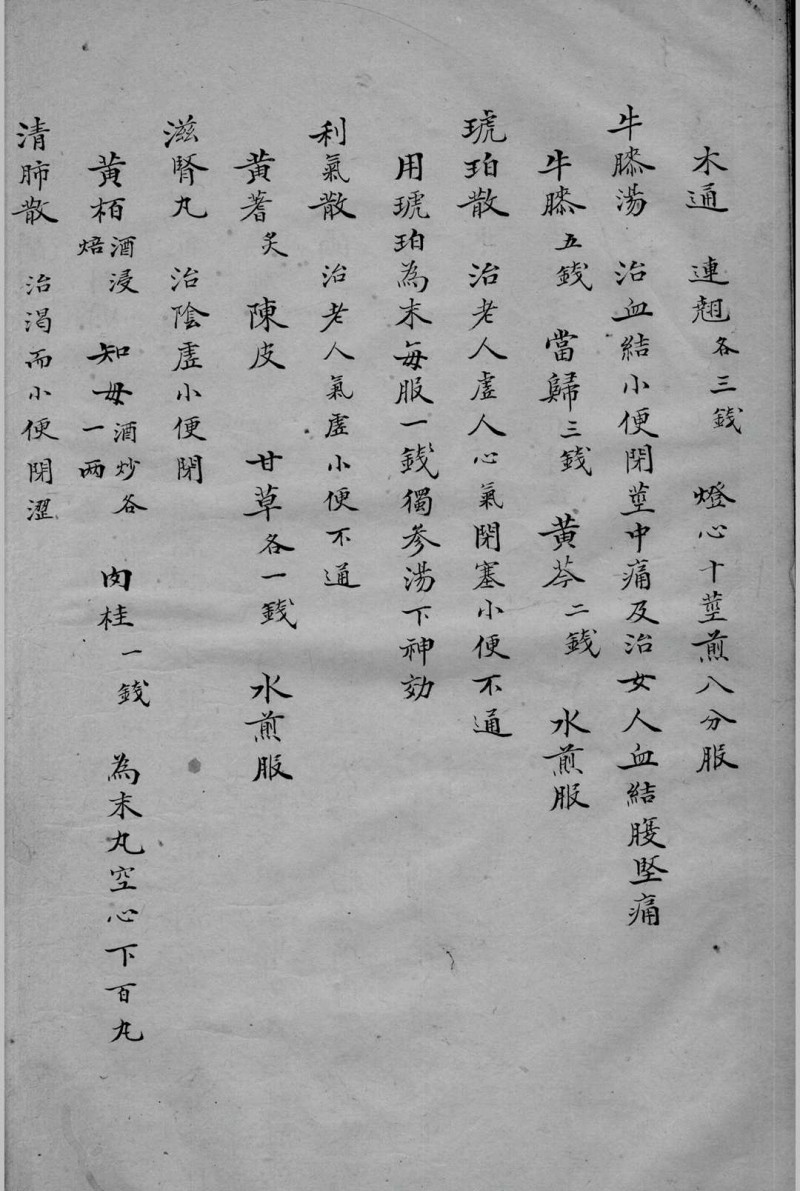 木通 連翹各三錢 燈心十莖煎八分服
牛膝湯 治血結小便閉莖中痛及治女人血結腹堅痛
牛膝五錢 當歸三錢 黃芩二錢 水煎服
琥珀散 治老人虛人心氣閉塞小便不通
用琥珀為末每服一錢獨參湯下神効
利氣散 治老人氣虛小便不通
黃蓍炙 陳皮 甘草各一錢 水煎服
滋腎丸 治陰虛小便閉
黃栢酒浸焙 知母酒炒各一兩 肉桂一錢 為末丸空心下百丸
清肺散 治渴而小便閉澀